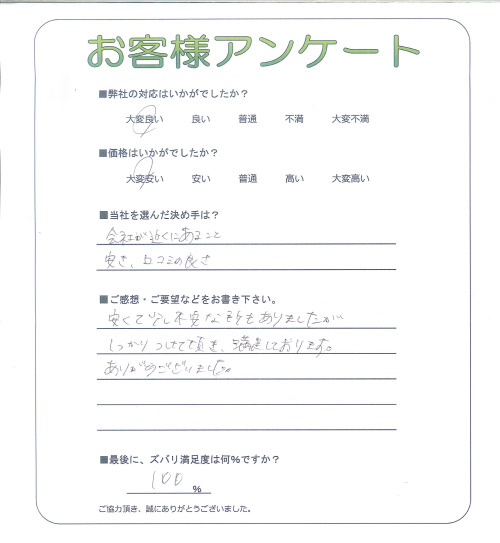 お客様アンケート
■弊社の対応はいかがでしたか？
大変良い 良い 普通 不満 大変不満
■価格はいかがでしたか？
大変安い 安い 普通 高い 大変高い
■当社を選んだ決め手は？
会社が近くにあること
安さ、口コミの良さ
■ご感想・ご要望などをお書き下さい。
安くて少し不安な所もありましたが
しっかりつけて頂き、満足しております。
ありがとうございました。
■最後に、ズバリ満足度は何％ですか？
100 ％
ご協力頂き、誠にありがとうございました。